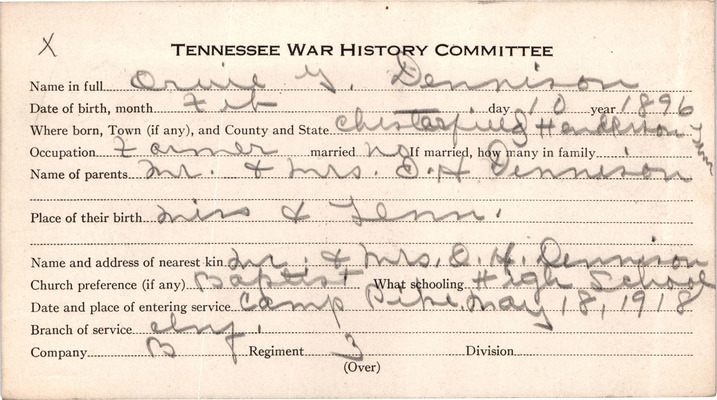 X
TENNESSEE WAR HISTORY COMMITTEE
Name in full Orvie G. Dennison
Date of birth, month Feb day 10 year 1896
Where born, Town (if any), and County and State Chesterfield Henderson Tenn
Occupation Farmer married no If married, how many in family
Name of parents Mr. & Mrs. O. H Dennison
Place of their birth Miss & Tenn.
Name and address of nearest kin Mr. & Mrs. O. H. Dennison
Church preference (if any) Baptist What schooling High School
Date and place of entering service Camp Pike, May 18, 1918
Branch of service
Company B Regiment 3 Division
(Over)